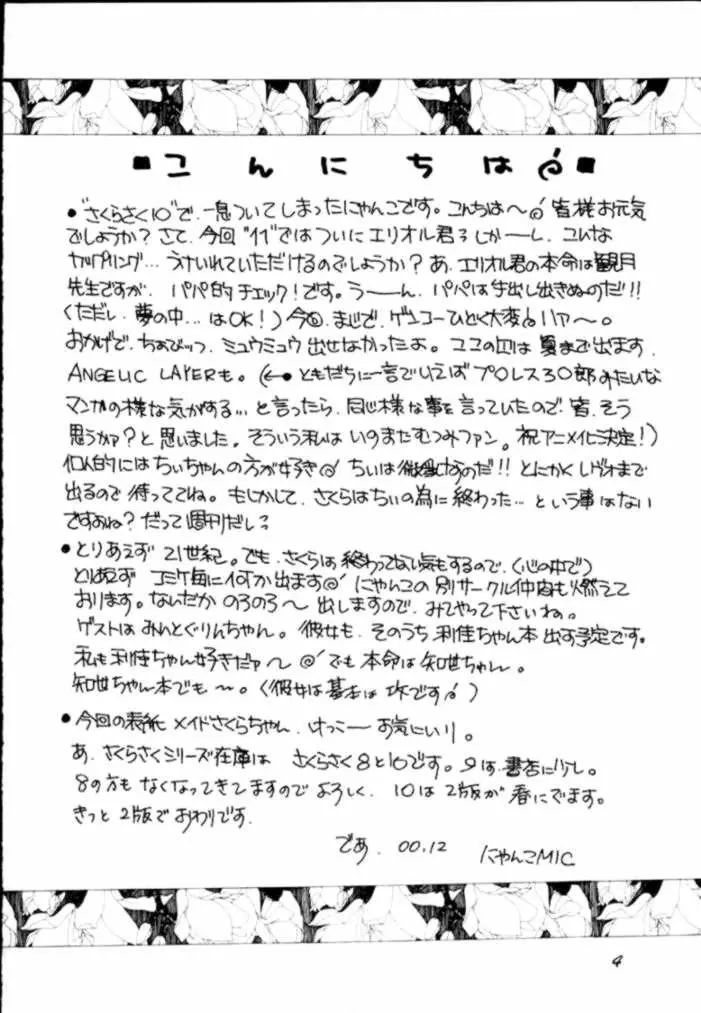 ■こんにちは■
●"さくらさく10"で、一息ついてしまったにゃんこです。こんちは〜 皆様お元気
でしょうか?さて、今回"11"ではついにエリオル君 しか——し、こんな
カップリング…うけいれていただけるのでしょうか?あ、エリオル君の本命は観月
先生ですが、パパ的チェック!です。う——ん、パパは手出し出きぬのだ!!
(ただし、夢の中…はOK!)今回、まじで、ゲンコーひどく大変 ハァ〜。
おかげで、ちぁびっつ、ミュウミュウ出せなかったよ。ココの は夏まで出ます。
ANGELIC LAYERも。(←●ともだちに一言でいえばプロレス3〇郎みたいな
マンガの様な気がする…と言ったら、同じ様な事を言っていたので、皆、そう
思うかァ?と思いました。そういう私はいのまたむつみファン。祝アニメイヒ決定!)
個人的にはちぃちゃんの方が好き ちいは なのだ!!とにかく まで
出るので待っててね。もしかして、さくらはちぃの為に終わった…という事はない
ですよね?だって週刊だし?
●とりあえず 21世紀。でも、さくらは終わってない気もするので、(心の中で)
とりあえず コミケ毎に何か出ます にゃんこの別サークル仲間も燃えて
おります。なんだか のろのろ〜 出しますので、みてやって下さいね。
ゲストはみんとぐりんちゃん。彼女も、そのうち利佳ちゃん本 出す予定です。
私も利佳ちゃん好きだァ〜 でも本命は知世ちゃん。
知世ちゃん本でも〜。(彼女は基本は攻です)
●今回の表紙 メイドさくらちゃん、けっこ——お気にいり。
あ、さくらさくシリーズ在庫は さくらさく8と10です。9は、書店に少し。
8の方も なくなってきてますので よろしく、10は2版が春にでます。
きっと2版でおわりです。
であ、00.12 にゃんこMIC
4